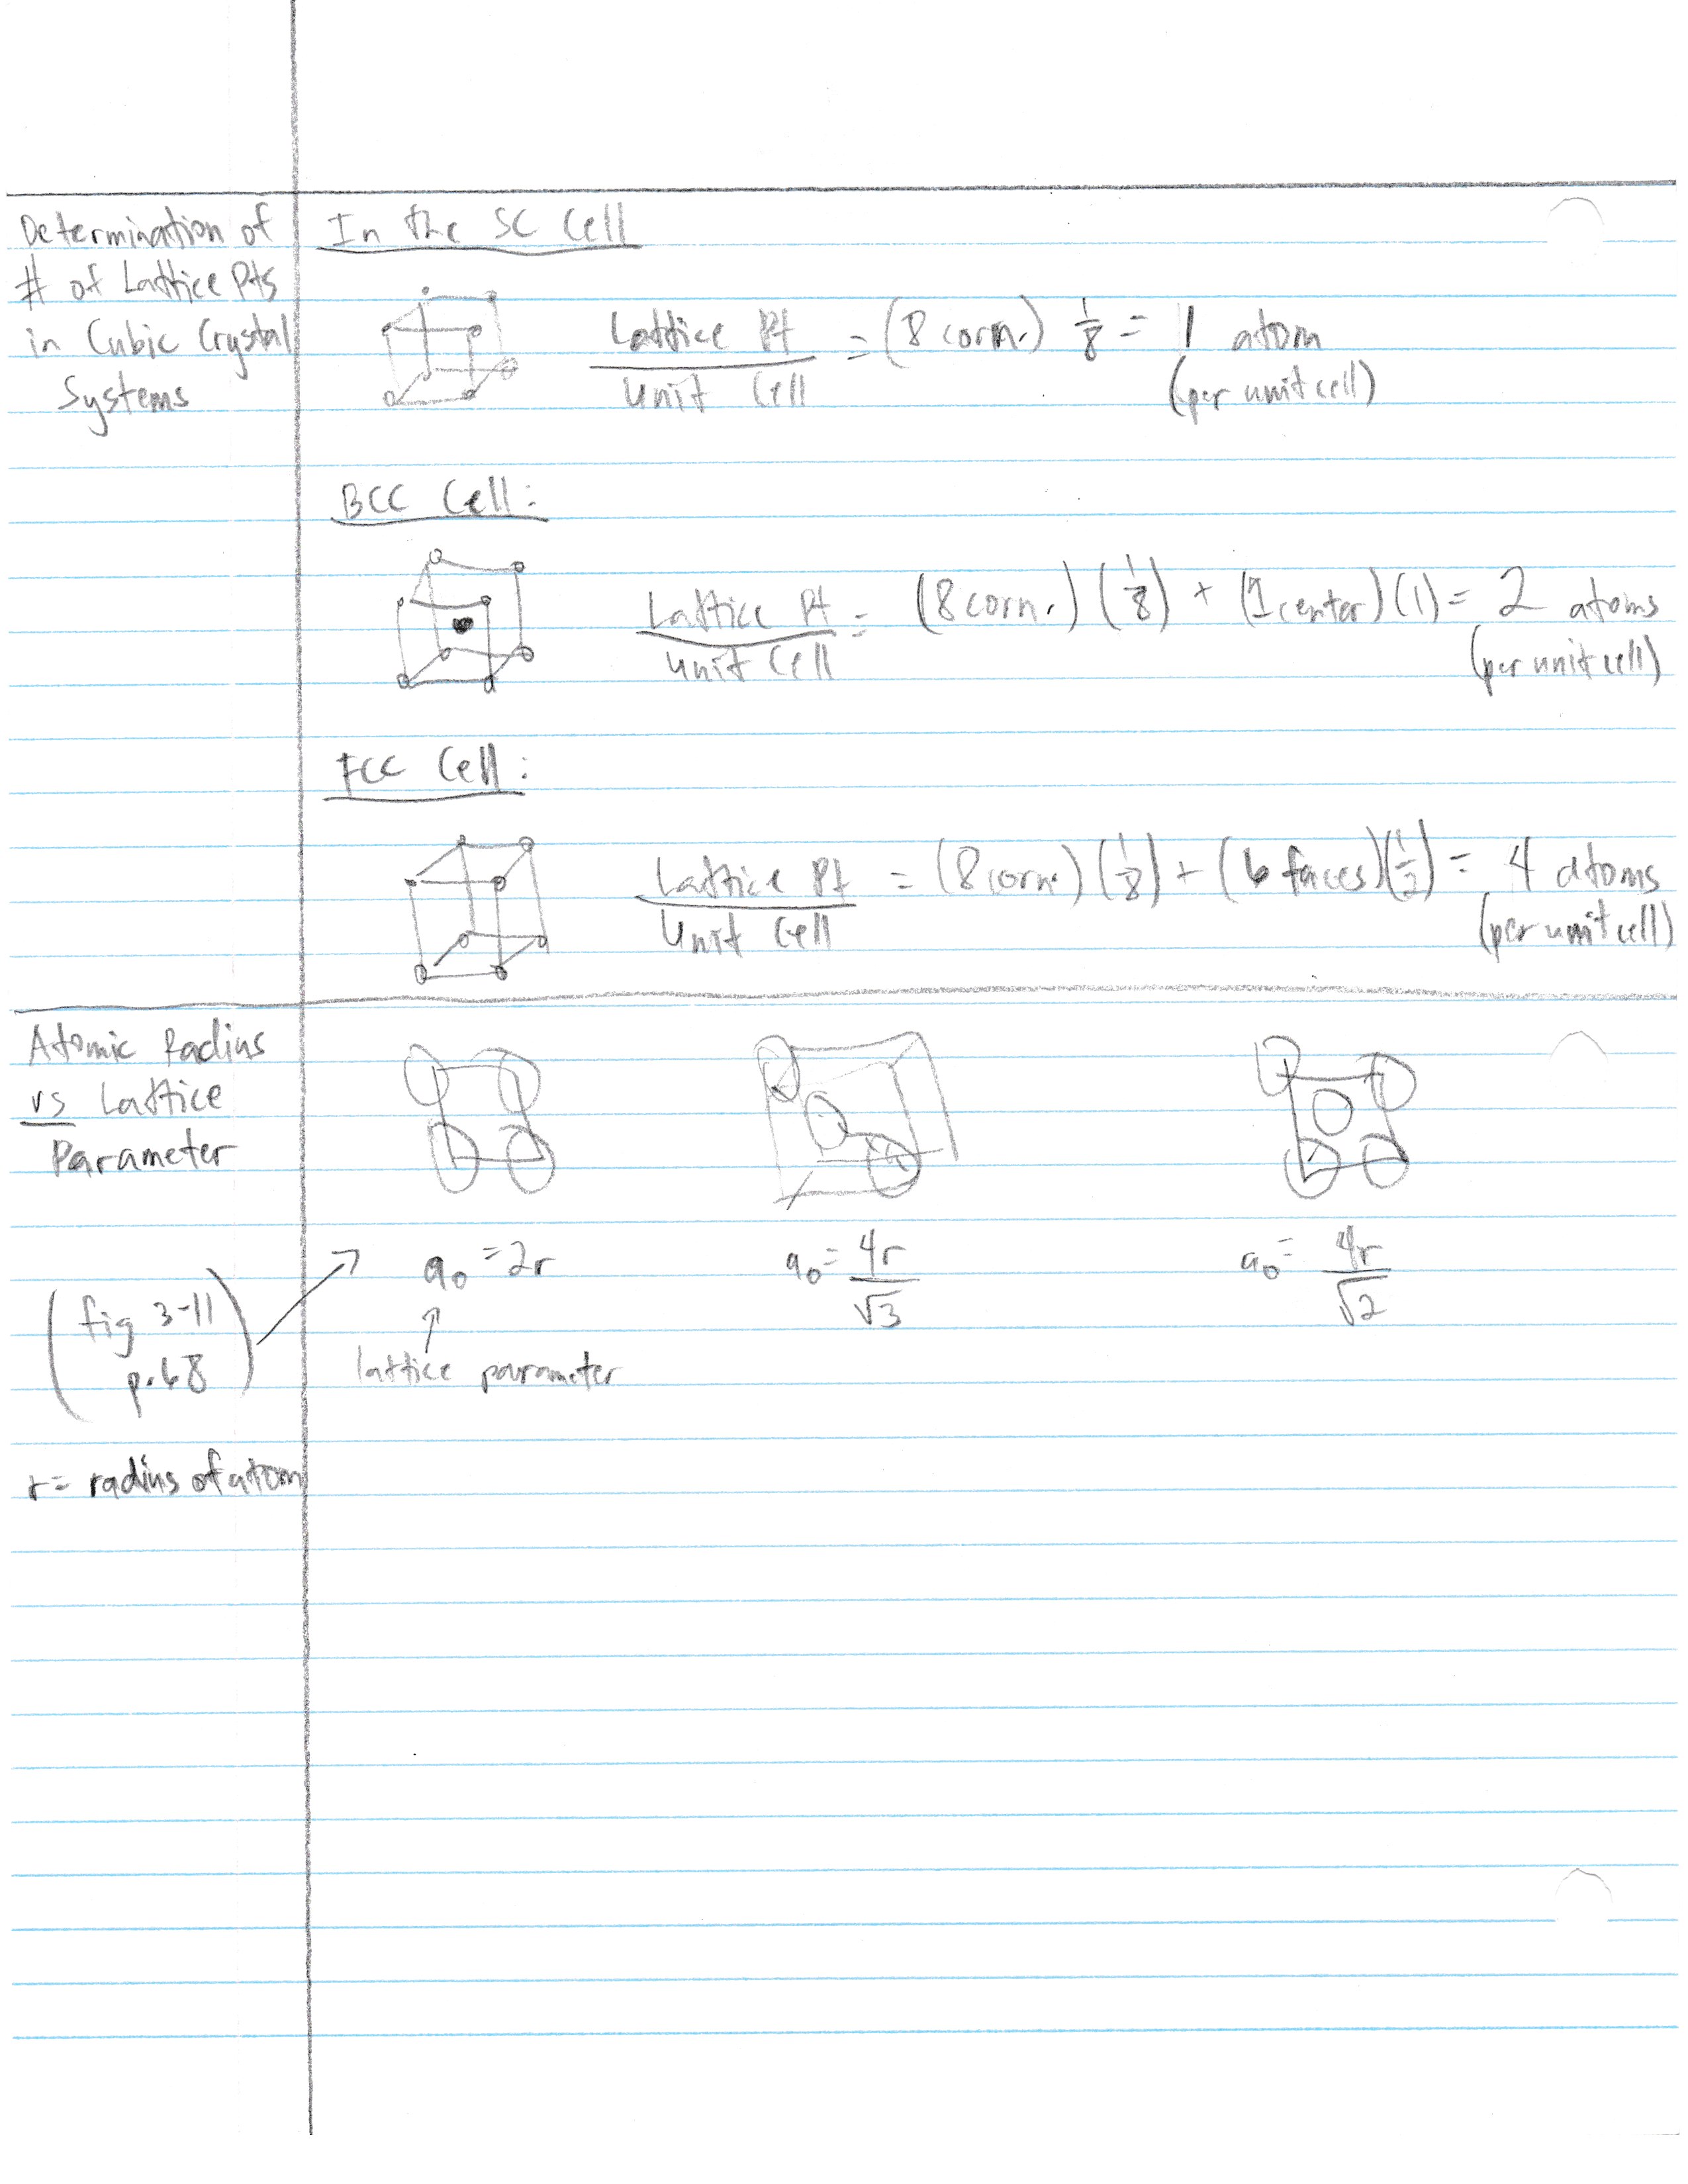 Determination of
# of Lattice Pts
in Cubic Crystal
Systems
In the SC Cell
Lattice Pt / Unit Cell = (8 corn.) 1/8 = 1 atom
(per unit cell)
BCC Cell:
Lattice Pt / Unit Cell = (8 corn.) (1/8) + (1 center) (1) = 2 atoms
(per unit cell)
FCC Cell:
Lattice Pt / Unit Cell = (8 corn.) (1/8) + (6 faces)(1/2) = 4 atoms
(per unit cell)
Atomic Radius
vs Lattice
Parameter
(fig 3-11
p.68)
a₀ = 2r
↑
lattice parameter
a₀ = 4r/√3
a₀ = 4r/√2
r = radius of atom